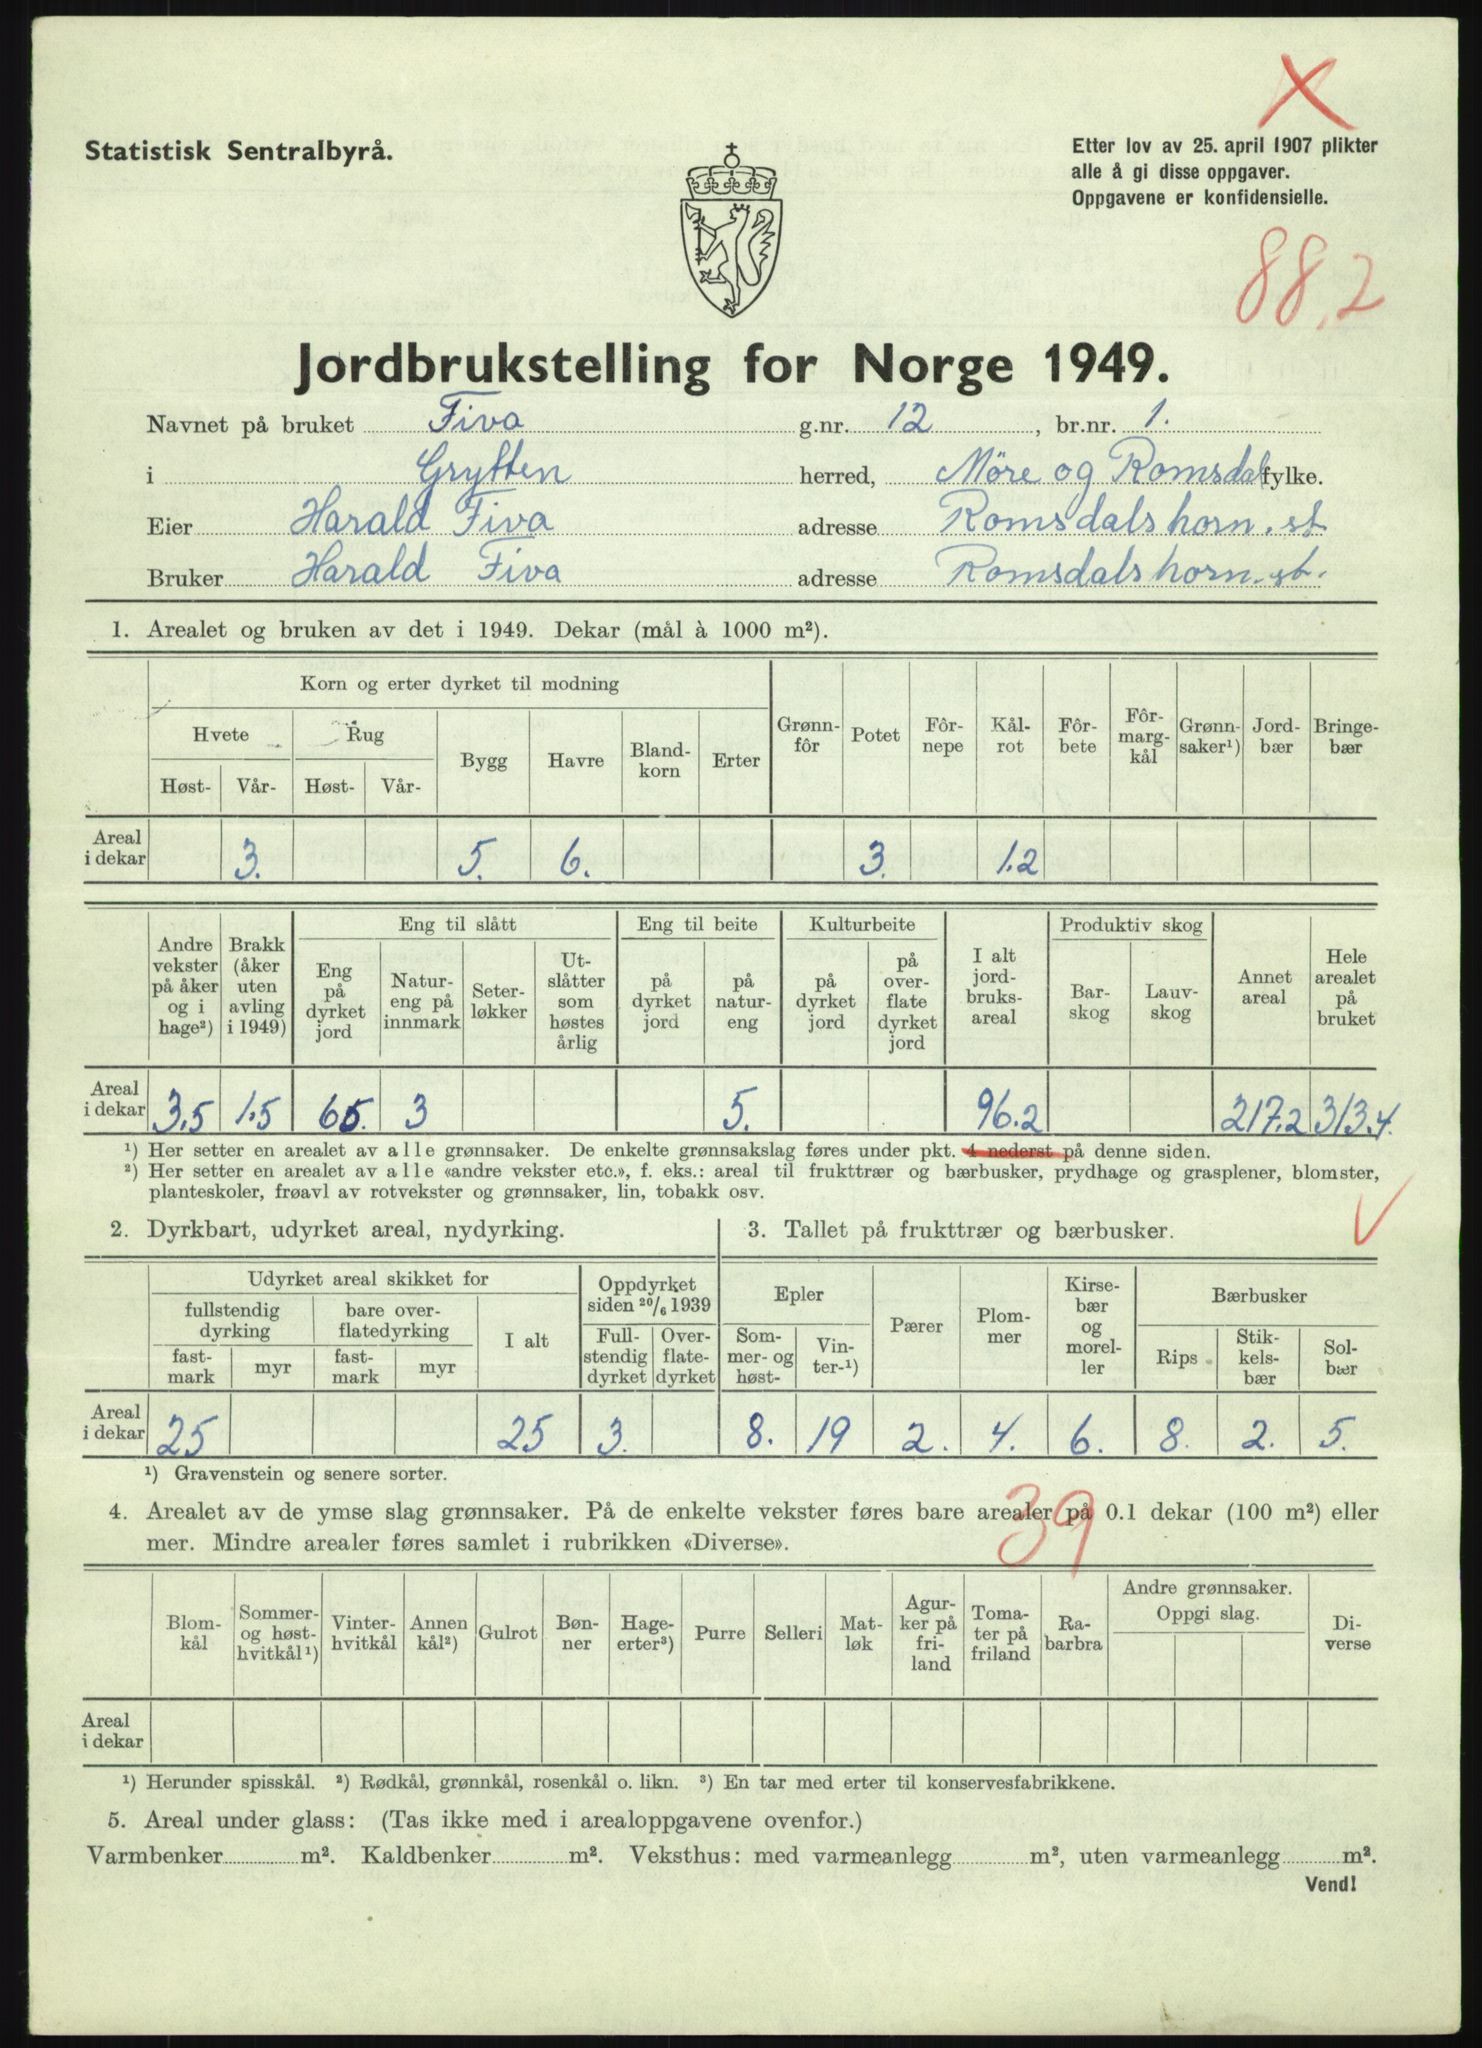 Statistisk Sentralbyrå.
Etter lov av 25. april 1907 plikter
alle å gi disse oppgaver.
Oppgavene er konfidensielle.
88,2
Jordbrukstelling for Norge 1949.
Navnet på bruket Fiva g.nr. 12, br.nr. 1.
i Grytten herred, Möre og Romsdal fylke.
Eier Harald Fiva adresse Romsdalshorn. st
Bruker Harald Fiva adresse Romsdalshorn. st.
1. Arealet og bruken av det i 1949. Dekar (mål à 1000 m²).
Korn og erter dyrket til modning
Hvete Rug Bygg Havre Bland-korn Erter Grønn-fôr Potet Fôr-nepe Kål-rot Fôr-bete Fôr-marg-kål Grønn-saker¹) Jord-bær Bringe-bær
Høst- Vår- Høst- Vår-
Areal i dekar 3. 5. 6. 3. 1.2
Andre vekster på åker og i hage²) Brakk (åker uten avling i 1949) Eng til slått Eng til beite Kulturbeite I alt jord-bruks-areal Produktiv skog Annet areal Hele arealet på bruket
Eng på dyrket jord Natur-eng på innmark Seter-løkker Ut-slåtter som høstes årlig på dyrket jord på natur-eng på dyrket jord på over-flate dyrket jord Bar-skog Lauv-skog
Areal i dekar 3.5 1.5 65. 3 5. 96.2 217.2 313.4.
¹) Her setter en arealet av alle grønnsaker. De enkelte grønnsakslag føres under pkt. 4 nederst på denne siden.
²) Her setter en arealet av alle «andre vekster etc.», f. eks.: areal til frukttrær og bærbusker, prydhage og grasplener, blomster,
planteskoler, frøavl av rotvekster og grønnsaker, lin, tobakk osv.
2. Dyrkbart, udyrket areal, nydyrking.
3. Tallet på frukttrær og bærbusker.
Udyrket areal skikket for Oppdyrket siden 20/6 1939 Epler Pærer Plom-mer Kirse-bær og morel-ler Bærbusker
fullstendig dyrking bare over-flatedyrking I alt Full-stendig dyrket Over-flate-dyrket Som-mer- og høst- Vin-ter-¹) Rips Stik-kels-bær Sol-bær
fast-mark myr fast-mark myr
Areal i dekar 25 25 3. 8. 19 2. 4. 6. 8. 2. 5.
¹) Gravenstein og senere sorter.
39
4. Arealet av de ymse slag grønnsaker. På de enkelte vekster føres bare arealer på 0.1 dekar (100 m²) eller
mer. Mindre arealer føres samlet i rubrikken «Diverse».
Blom-kål Sommer- og høst-hvitkål¹) Vinter-hvitkål Annen kål²) Gulrot Bøn-ner Hage-erter³) Purre Selleri Mat-løk Agur-ker på fri-land Toma-ter på friland Ra-barbra Andre grønnsaker. Oppgi slag. Di-verse
Areal i dekar
¹) Herunder spisskål. ²) Rødkål, grønnkål, rosenkål o. likn. ³) En tar med erter til konservesfabrikkene.
5. Areal under glass: (Tas ikke med i arealoppgavene ovenfor.)
Varmbenker m². Kaldbenker m². Veksthus: med varmeanlegg m², uten varmeanlegg m².
Vend!